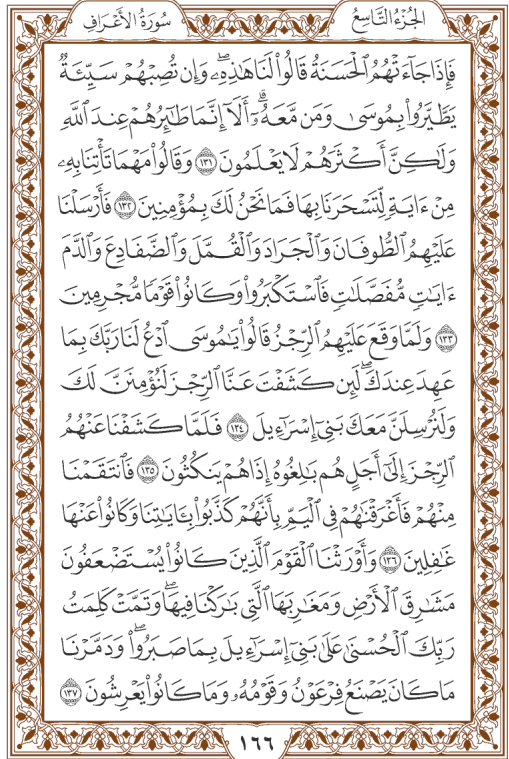 الجُزْءُ التَّاسِعُ
سُورَةُ الأَعْرَافِ
فَإِذَا جَآءَتْهُمُ ٱلْحَسَنَةُ قَالُوا۟ لَنَا هَٰذِهِۦۖ وَإِن تُصِبْهُمْ سَيِّئَةٌ
يَطَّيَّرُوا۟ بِمُوسَىٰ وَمَن مَّعَهُۥٓۗ أَلَآ إِنَّمَا طَٰٓئِرُهُمْ عِندَ ٱللَّهِ
وَلَٰكِنَّ أَكْثَرَهُمْ لَا يَعْلَمُونَ ١٣١ وَقَالُوا۟ مَهْمَا تَأْتِنَا بِهِۦ
مِنْ ءَايَةٍ لِّتَسْحَرَنَا بِهَا فَمَا نَحْنُ لَكَ بِمُؤْمِنِينَ ١٣٢ فَأَرْسَلْنَا
عَلَيْهِمُ ٱلطُّوفَانَ وَٱلْجَرَادَ وَٱلْقُمَّلَ وَٱلضَّفَادِعَ وَٱلدَّمَ
ءَايَٰتٍ مُّفَصَّلَٰتٍ فَٱسْتَكْبَرُوا۟ وَكَانُوا۟ قَوْمًا مُّجْرِمِينَ
١٣٣ وَلَمَّا وَقَعَ عَلَيْهِمُ ٱلرِّجْزُ قَالُوا۟ يَٰمُوسَى ٱدْعُ لَنَا رَبَّكَ بِمَا
عَهِدَ عِندَكَۖ لَئِن كَشَفْتَ عَنَّا ٱلرِّجْزَ لَنُؤْمِنَنَّ لَكَ
وَلَنُرْسِلَنَّ مَعَكَ بَنِىٓ إِسْرَٰٓءِيلَ ١٣٤ فَلَمَّا كَشَفْنَا عَنْهُمُ
ٱلرِّجْزَ إِلَىٰٓ أَجَلٍ هُم بَٰلِغُوهُ إِذَا هُمْ يَنكُثُونَ ١٣٥ فَٱنتَقَمْنَا
مِنْهُمْ فَأَغْرَقْنَٰهُمْ فِى ٱلْيَمِّ بِأَنَّهُمْ كَذَّبُوا۟ بِـَٔايَٰتِنَا وَكَانُوا۟ عَنْهَا
غَٰفِلِينَ ١٣٦ وَأَوْرَثْنَا ٱلْقَوْمَ ٱلَّذِينَ كَانُوا۟ يُسْتَضْعَفُونَ
مَشَٰرِقَ ٱلْأَرْضِ وَمَغَٰرِبَهَا ٱلَّتِى بَٰرَكْنَا فِيهَاۖ وَتَمَّتْ كَلِمَتُ
رَبِّكَ ٱلْحُسْنَىٰ عَلَىٰ بَنِىٓ إِسْرَٰٓءِيلَ بِمَا صَبَرُوا۟ۖ وَدَمَّرْنَا
مَا كَانَ يَصْنَعُ فِرْعَوْنُ وَقَوْمُهُۥ وَمَا كَانُوا۟ يَعْرِشُونَ ١٣٧
١٦٦